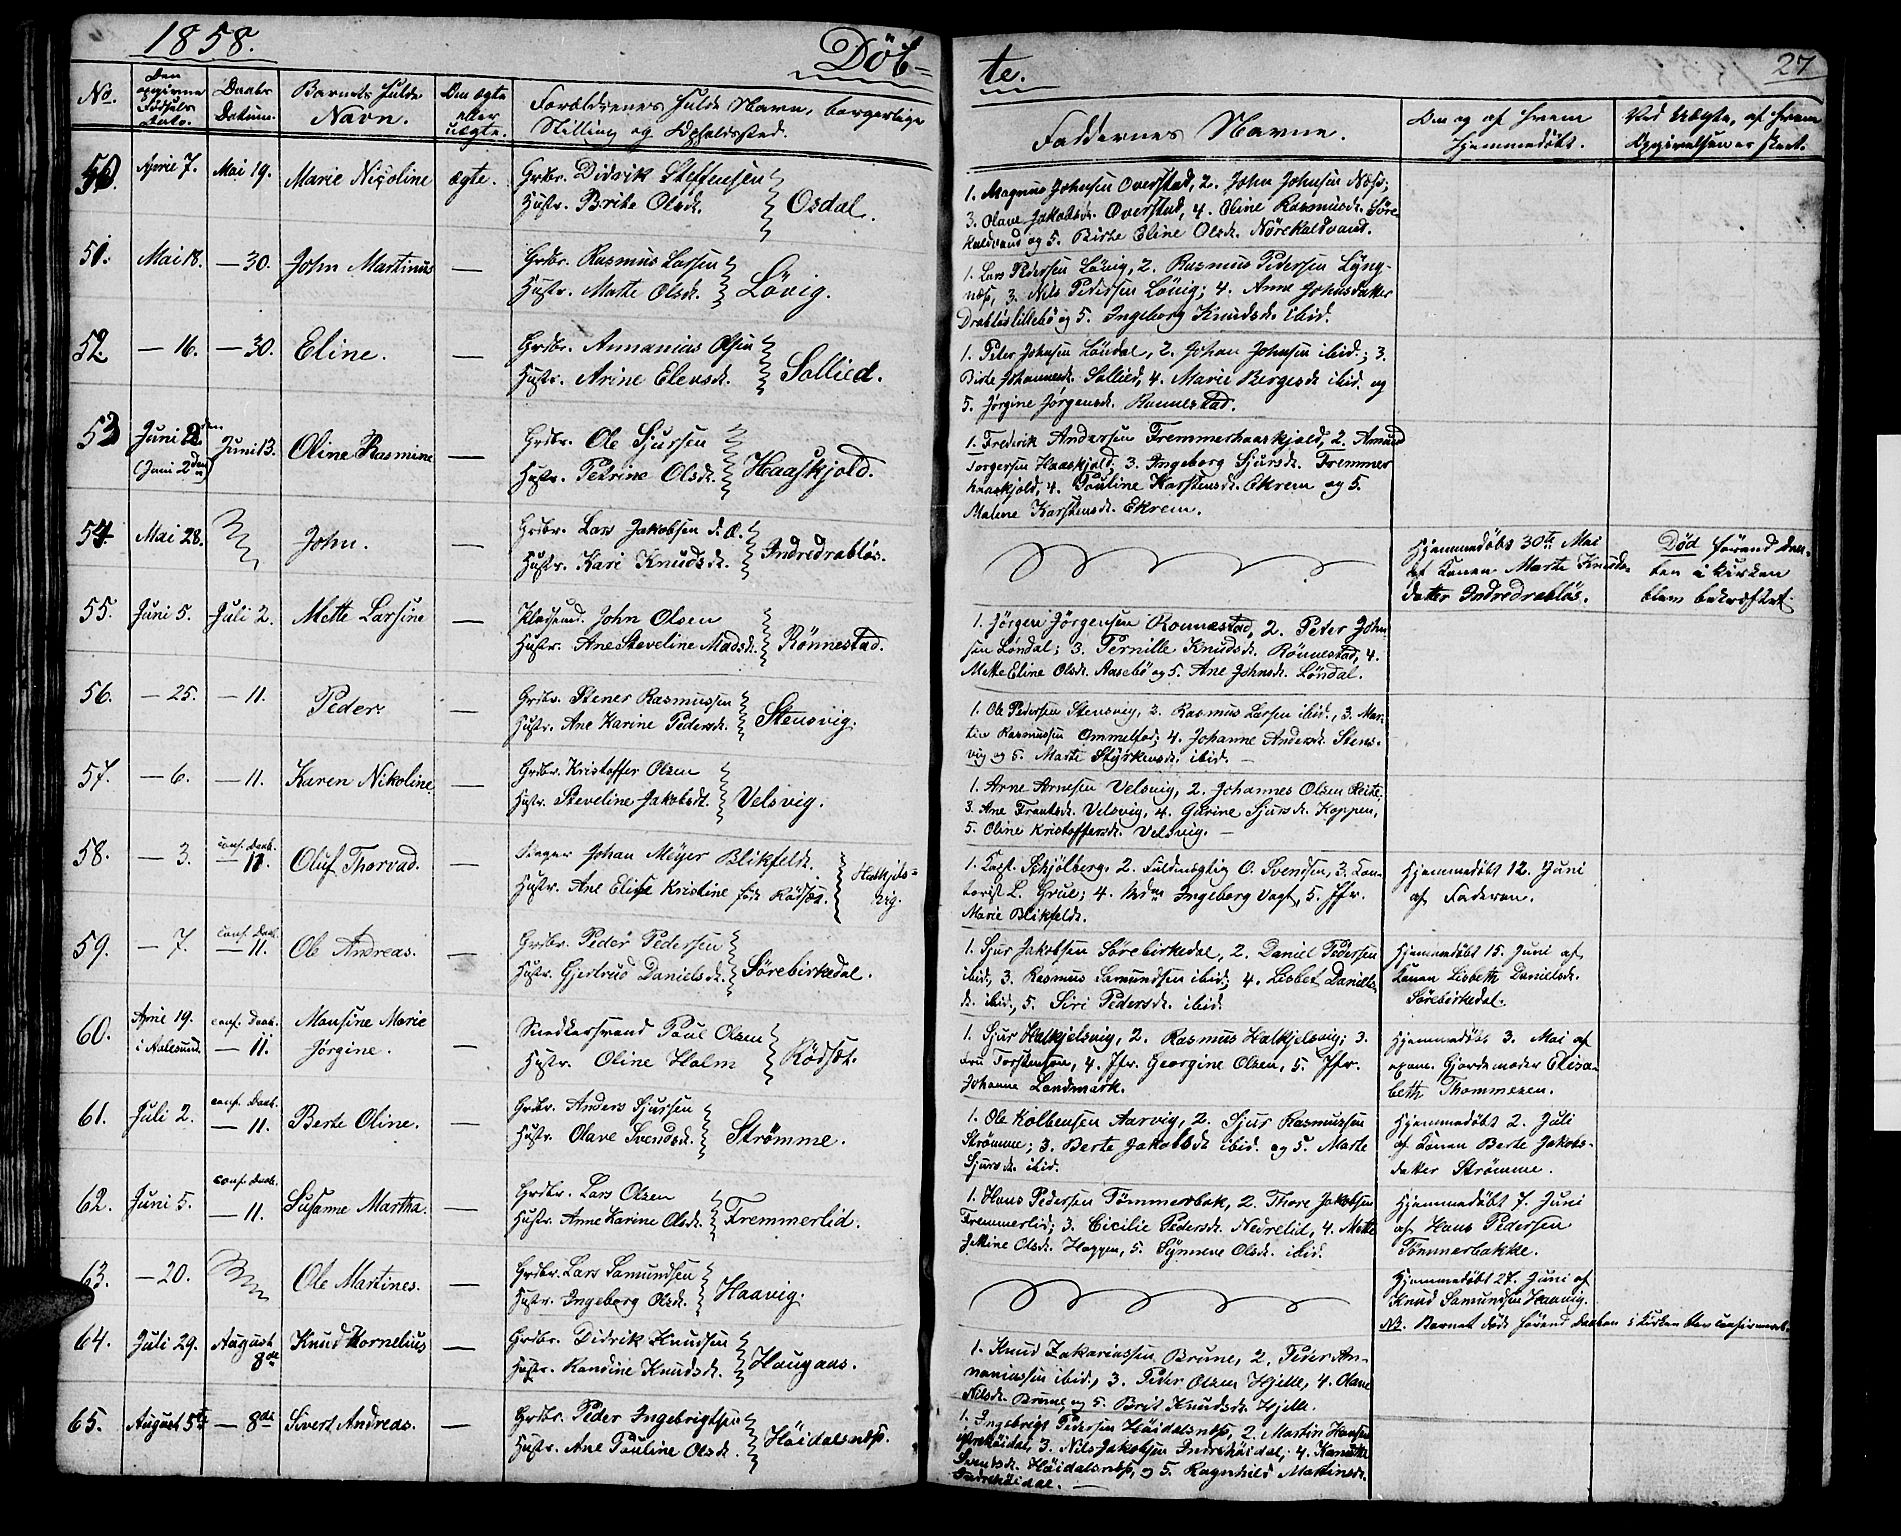 1858.
Døb-
te.
27
No.
Den opgivne Fødsels Dato.
Daabs Datum.
Barnets fulde Navn.
Om ægte eller uægte.
Forældrenes fulde Navn, borgerlige Stilling og Opholdssted.
Faddernes Navne.
Om og af hvem hjemmedøbt.
Ved Uægte, af hvem Opgivelsen er skeet.
50. April 7. Mai 19. Marie Nicoline ægte.
Grdbr. Didrik Steffensen
Hustr. Brite Olsdr. Osdal.
1. Magnus Johnsen Overstad, 2. John Johnsen Næss;
3. Olave Jakobsdr. Overstad, 4. Oline Rasmusdr. Søre-
kaldvand og 5. Birte Eline Olsdr. Nørekaldvand.
51. Mai 18. — 30. John Martinus —
Grdbr. Rasmus Larsen
Hustr. Mette Olsdr. Løvig.
1. Lars Pedersen Løvig, 2. Rasmus Pedersen Lyng-
næss, 3. Nils Pedersen Løvig; 4. Anne Johnsdatter
Drabløslillebø og 5. Ingeborg Knudsdr. ibid.
52 — 16. — 30. Eline. —
Grdbr. Annanias Olsen
Hustr. Arine Elensdr. Sollied.
1. Peter Johnsen Løndal, 2. Johan Johnsen ibid.; 3.
Birte Johannesdr. Sollied, 4. Marie Bergesdr. ibid. og
5. Jørgine Jørgensdr. Rønnestad.
53 Juni 2den
(Juni 2den) Juni 13. Oline Rasmine —
Grdbr. Ole Sjursen
Hustr. Petrine Olsdr. Haaskjold.
1. Frederik Andersen Fremmerhaaskjold, 2. Amund
Torgersen Haaskjold; 3. Ingeborg Sjursdr. Fremmer
haaskjold, 4. Pauline Karstensdr. Ekrem og 5.
Malene Karstensdr. Ekrem.
54. Mai 28. John. —
Grdbr. Lars Jakobsen d. Æ.
Hustr. Kari Knudsdr. Indredrabløs.
Hjemmedøbt 30te Mai
af Konen Marte Knuds-
datter Indredrabløs.
Død førend Daa-
ben i Kirken
blev bekræftet.
55. Juni 5. Juli 2. Mette Larsine —
Pladsmd. John Olsen
Hustr. Ane Steveline Madsdr. Rønnestad.
1. Jørgen Jørgensen Rønnestad, 2. Peter John
sen Løndal; 3. Pernille Knudsdr. Rønnestad, 4.
Mette Eline Olsdr. Aasebø og 5. Ane Johnsdr. Løndal.
56. — 25. — 11. Peder. —
Grdbr. Stener Rasmussen
Hustr. Ane Karine Pedersdr. Stensvig.
1. Ole Pedersen Stensvig, 2. Rasmus Larsen ibid., 3. Mar-
tin Rasmussen Ommelstad; 4. Johanne Andersdr. Stens-
vig og 5. Marte Styrkersdr. ibid. —
57. — 6. — 11. Karen Nikoline. —
Grdbr. Kristoffer Olsen
Hustr. Steveline Jakobsdr. Velsvig.
1. Arne Arnesen Velsvig, 2. Johannes Olsen Reite;
3. Ane Frantsdr. Velsvig, 4. Gurine Sjursdr. Koppen,
5. Oline Kristoffersdr. Velsvig. —
58. — 3. conf. Daab. — 11. Oluf Thorvad. —
Johan Meyer Blikfeldt.
Hustr. Ane Elise Kristine født Rødset. Hatkjels-
vig.
1. Skjølberg, 2. Fuldmægtig O. Svendsen, 3. Kon-
torist L. Grue; 4. Mdm Ingeborg Vagt, 5. Jfr.
Marie Blikfeldt.
Hjemmedøbt 12. Juni
af Faderen.
59. — 7. conf. Daab. — 11. Ole Andreas. —
Grdbr. Peder Pedersen
Hustr. Gjertrud Danielsdr. Sørebirkedal.
1. Sjur Jakobsen Sørebirkedal, 2. Daniel Pedersen
ibid., 3. Rasmus Samundsen ibid.; 4. Lisbet Daniels-
dr. ibid., 5. Siri Pedersdr. ibid.
Hjemmedøbt 15. Juni af
Konen Lisbeth Danielsdr.
Sørebirkedal.
60. April 19.
i Aalesund. conf. Daab. — 11. Monsine Marie
Jørgine. —
Snedkersvend Poul Olsen
Hustr. Oline Holm Rødset.
1. Sjur Hatkjelsvig, 2. Rasmus Hatkjelsvig; 3.
Fru Torstensen, 4. Jfr. Georgine Olsen, 5. Jfr.
Johanne Landmark.
Hjemmedøbt 3. Mai af
exam. Gjordemoder Elisa-
beth Thommesen.
61. Juli 2. conf. Daab. — 11. Berte Oline. —
Grdbr. Anders Sjursen
Hustr. Olave Svendsdr. Strømme.
1. Ole Kolbensen Aarvig, 2. Sjur Rasmussen
Strømme; 3. Berte Jakobsdr. ibid. og 5. Marte
Sjursdr. ibid.
Hjemmedøbt 2. Juli
af Konen Berte Jakobs-
datter Strømme.
62. Juni 5. conf. Daab. — 11. Susanne Martha. —
Grdbr. Lars Olsen
Hustr. Anne Karine Olsdr. Fremmerlid.
1. Hans Pedersen Tømmerbak, 2. Thore Jakobsen
Fremmerlid; 3. Cicilie Pedersdr. Nedrelid, 4. Mette
Jettine Olsdr. Haggen, 5. Synneve Olsdr. ibid.
Hjemmedøbt 7. Juni
af Hans Pedersen
Tømmerbakke.
63. — 20. Ole Martines. —
Grdbr. Lars Samundsen
Hustr. Ingeborg Olsdr. Haavig.
Hjemmedøbt 27. Juni af
Knud Samundsen Haavig.
NB. Barnet døde førend Daaben i Kirken blev confirmeret.
64. Juli 29. August 8de Knud Kornelius —
Grdbr. Didrik Knudsen
Hustr. Kandine Knudsdr. Haugaas.
1. Knud Zakariassen Brune, 2. Peder An-
naniassen ibid., 3. Peder Olsen Hjelle, 4. Olave
Nilsdr. Brune og 5. Brit Knudsdr. Hjelle.
65. August 5te — 8de Sivert Andreas. —
Grdbr. Peder Ingebrigtsen
Hustr. Ane Pauline Olsdr. Høidalsnæss.
1. Ingebrigt Pedersen Høidalsnæss, 2. Martin Hansen
Ytrehøidal, 3. Nils Jakobsen Indrehøidal; 4. Kanutte
Svendsdr. Høidalsnæss, og 5. Ragnhild Martinsdr.
Indrehøidal. —